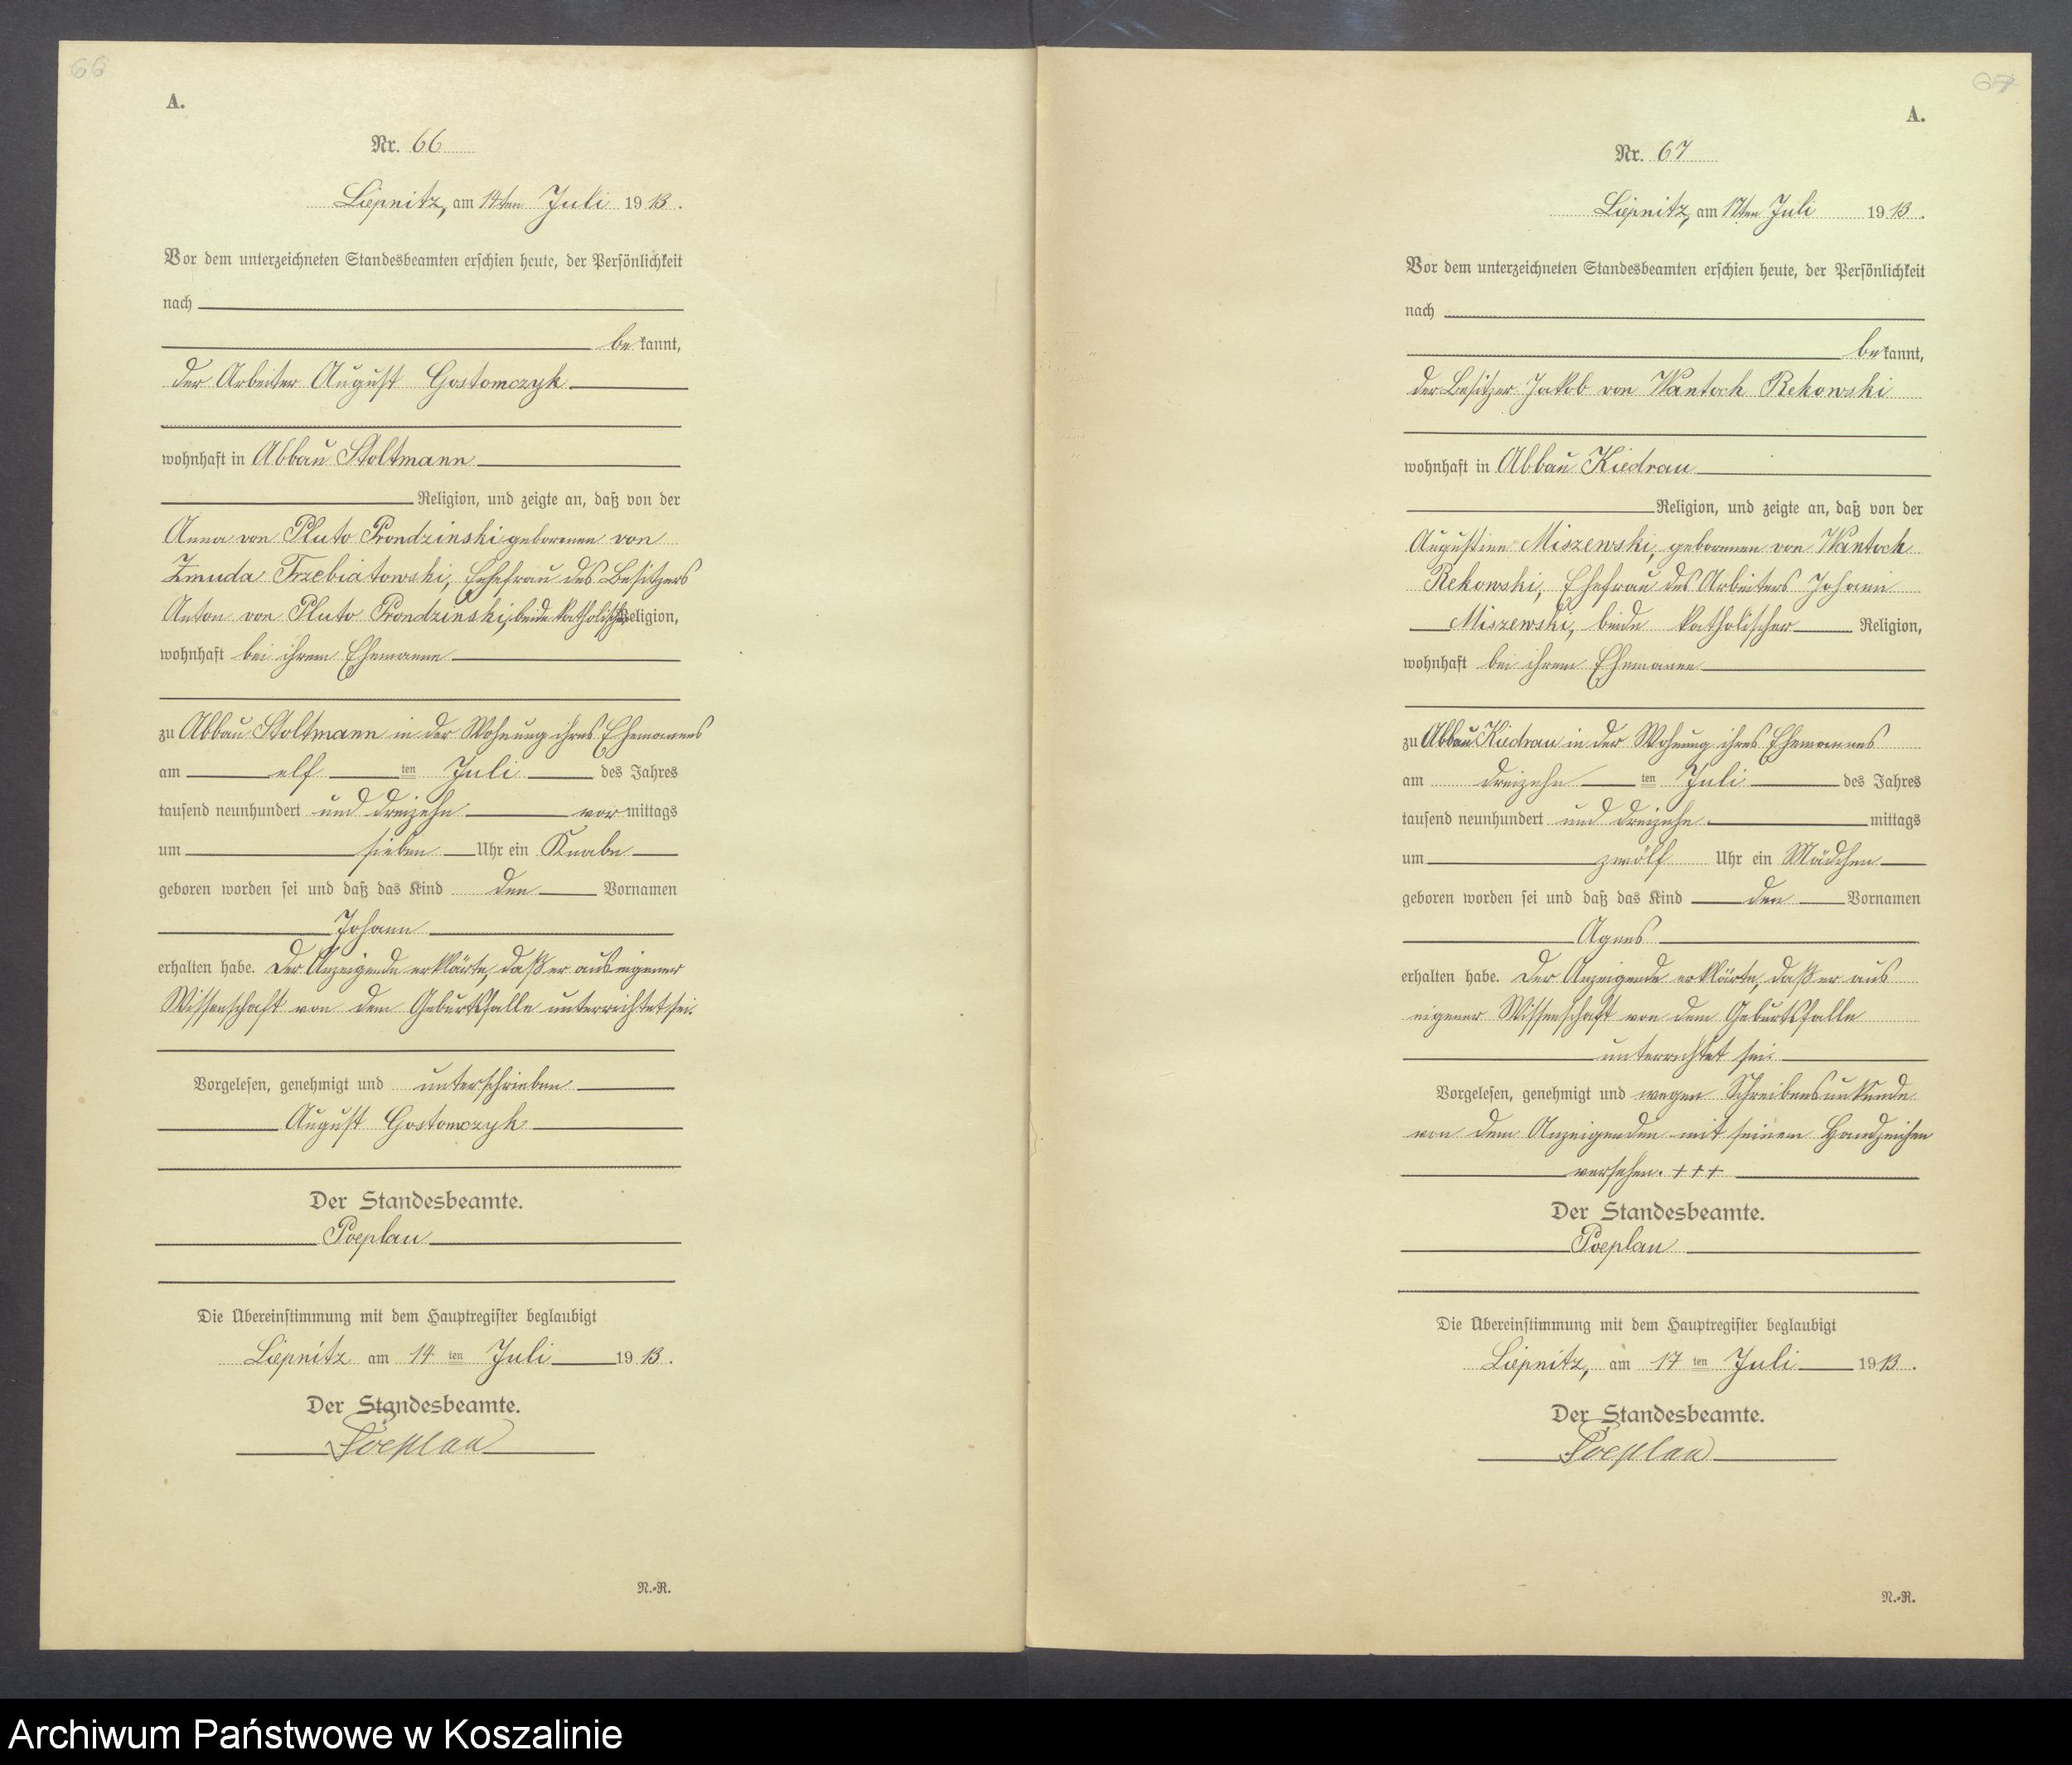 66
A.
Nr. 66
Liepnitz, am 14ten Juli 1913.
Vor dem unterzeichneten Standesbeamten erschien heute, der Persönlichkeit
nach
bekannt,
der Arbeiter August Gostomczyk
wohnhaft in Abbau Stoltmann
Religion, und zeigte an, daß von der
Anna von Pluto Prondzinski geborenen von
Zmuda Trzebiatowski, Ehefrau des Besitzers
Anton von Pluto Prondzinski, beide katholischer Religion,
wohnhaft bei ihrem Ehemanne
zu Abbau Stoltmann in der Wohnung ihres Ehemannes
am elf ten Juli des Jahres
tausend neunhundert und dreizehn vormittags
um sieben Uhr ein Knabe
geboren worden sei und daß das Kind den Vornamen
Johann
erhalten habe. Der Anzeigende erklärte, daß er aus eigener
Wissenschaft von dem Geburtsfalle unterrichtet sei.
Vorgelesen, genehmigt und unterschrieben
August Gostomczyk
Der Standesbeamte.
Poeplau
Die Übereinstimmung mit dem Hauptregister beglaubigt
Liepnitz am 14 ten Juli 1913.
Der Standesbeamte.
Poeplau
N.-R.
67
A.
Nr. 67
Liepnitz, am 17ten Juli 1913.
Vor dem unterzeichneten Standesbeamten erschien heute, der Persönlichkeit
nach
bekannt,
der Besitzer Jakob von Wantoch Rekowski
wohnhaft in Abbau Kiedrau
Religion, und zeigte an, daß von der
Augustine Miszewski, geborenen von Wantoch
Rekowski, Ehefrau des Arbeiters Johann
Miszewski, beide katholischer Religion,
wohnhaft bei ihrem Ehemanne
zu Abbau Kiedrau in der Wohnung ihres Ehemannes
am dreizehn ten Juli des Jahres
tausend neunhundert und dreizehn mittags
um zwölf Uhr ein Mädchen
geboren worden sei und daß das Kind den Vornamen
Agnes
erhalten habe. Der Anzeigende erklärte, daß er aus
eigener Wissenschaft von dem Geburtsfalle
unterrichtet sei.
Vorgelesen, genehmigt und wegen Schreibensunkunde
von dem Anzeigenden mit seinem Handzeichen
versehen. +++
Der Standesbeamte.
Poeplau
Die Übereinstimmung mit dem Hauptregister beglaubigt
Liepnitz, am 17 ten Juli 1913.
Der Standesbeamte.
Poeplau
N.-R.
Archiwum Państwowe w Koszalinie